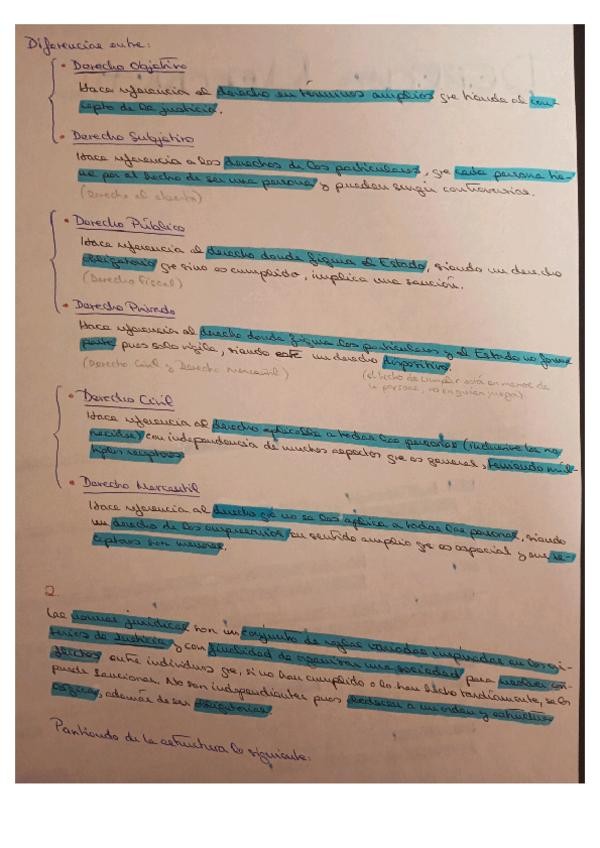 Diferencias entre:
• Derecho Objetivo
Hace referencia al derecho en términos amplios que tiende al con-
cepto de la justicia.
• Derecho Subjetivo
Hace referencia a los derechos de los particulares, que cada persona tie-
ne por el hecho de ser una persona y pueden surgir controversias.
(Derecho al
• Derecho Público
Hace referencia al derecho donde figura el Estado, siendo un derecho
obligatorio que si no es cumplido, implica una sanción.
(Derecho Fiscal)
• Derecho Privado
Hace referencia al derecho donde figura los particulares y el Estado no forma
parte pues solo vigila, siendo este un derecho dispositivo.
(Derecho Civil y Derecho Mercantil)
(el hecho de cumplir está en manos de
la persona, no en quien juzga)
• Derecho Civil
Hace referencia al derecho aplicable a todas las personas (inclusive los no
nacidos) con independencia de muchos aspectos que es general, teniendo múl-
tiples receptores
• Derecho Mercantil
Hace referencia al derecho que no se les aplica a todas las personas, siendo
un derecho de los empresarios en sentido amplio que es especial y sus re-
ceptores son menores.
2.
Las normas jurídicas son un conjunto de reglas variadas inspiradas en los cri-
terios de Justicia y con finalidad de organizar una sociedad para resolver con-
flictos entre individuos que, si no han cumplido o lo han hecho tardíamente, se les
puede sancionar. No son independientes pues obedecen a un orden y estructura
además de ser obligatorias.
Partiendo de la estructura lo siguiente: